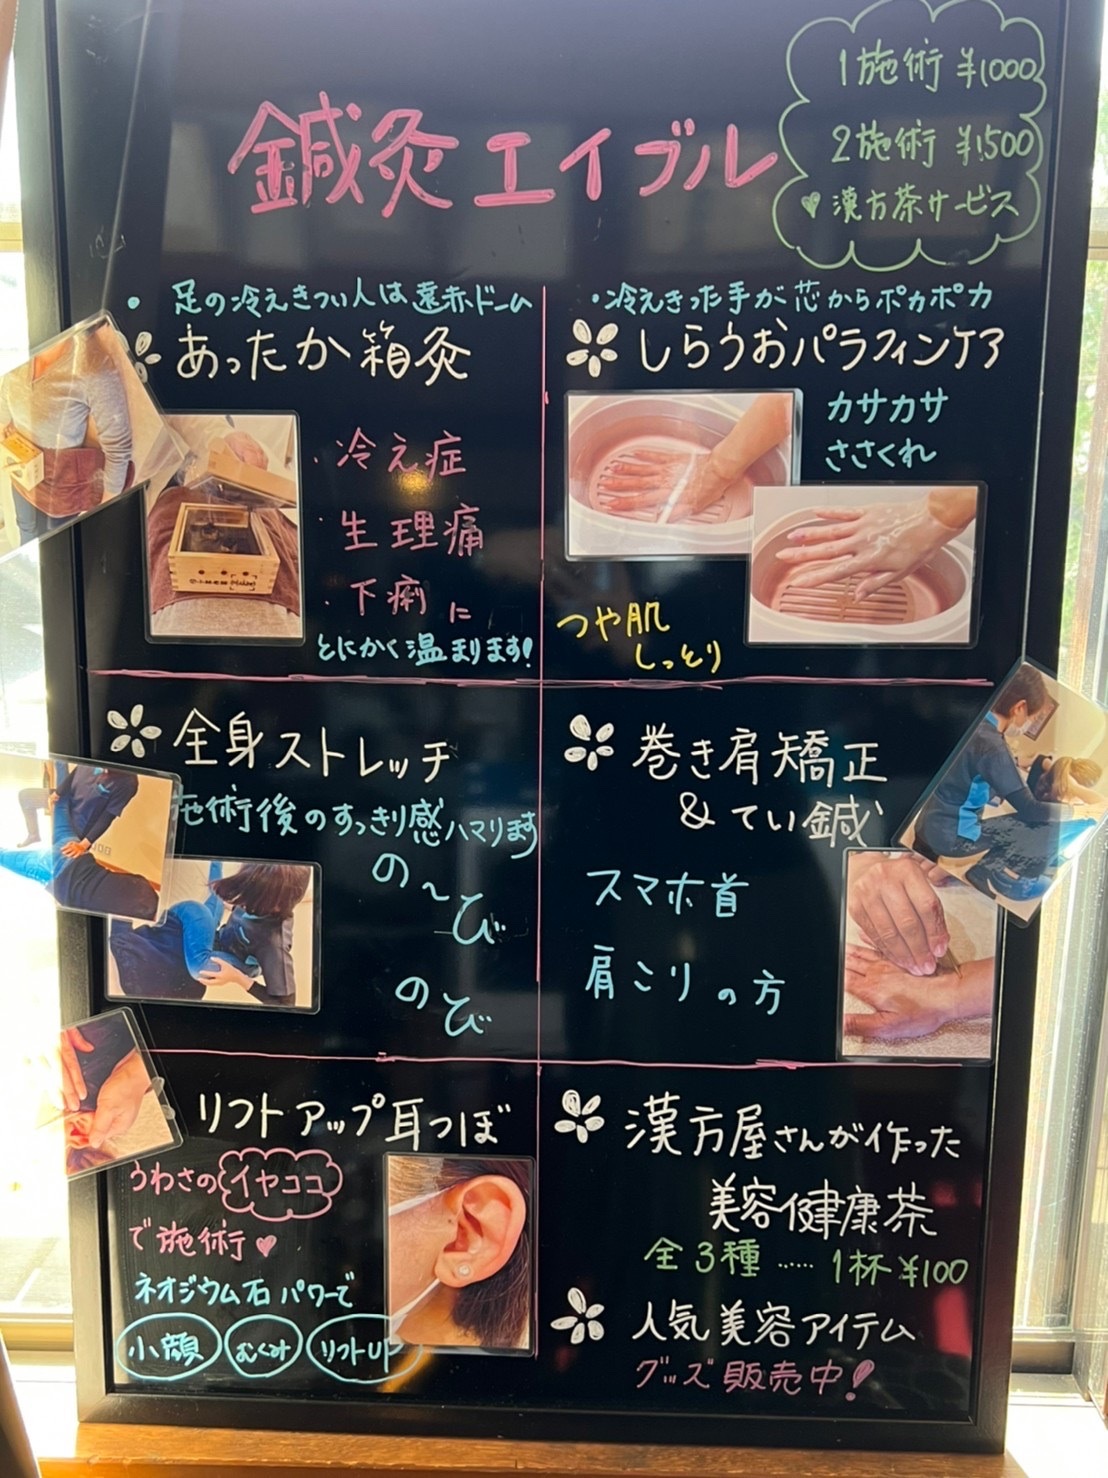 鍼灸エイブル
1施術 ¥1000
2施術 ¥1500
♥漢方茶サービス
・足の冷えきつい人は遠赤ドーム
あったか箱灸
・冷え症
・生理痛
・下痢に
とにかく温まります!
・冷えきった手が芯からポカポカ
しらうおパラフィンケア
カサカサ
ささくれ
つや肌
しっとり
全身ストレッチ
施術後のすっきり感ハマります
の〜び
のび
巻き肩矯正
&てい鍼
スマホ首
肩こりの方
リフトアップ耳つぼ
うわさのイヤココ
で施術♥
ネオジウム石パワーで
小顔 むくみ リフトUP
漢方屋さんが作った
美容健康茶
全3種……1杯¥100
人気美容アイテム
グッズ販売中!